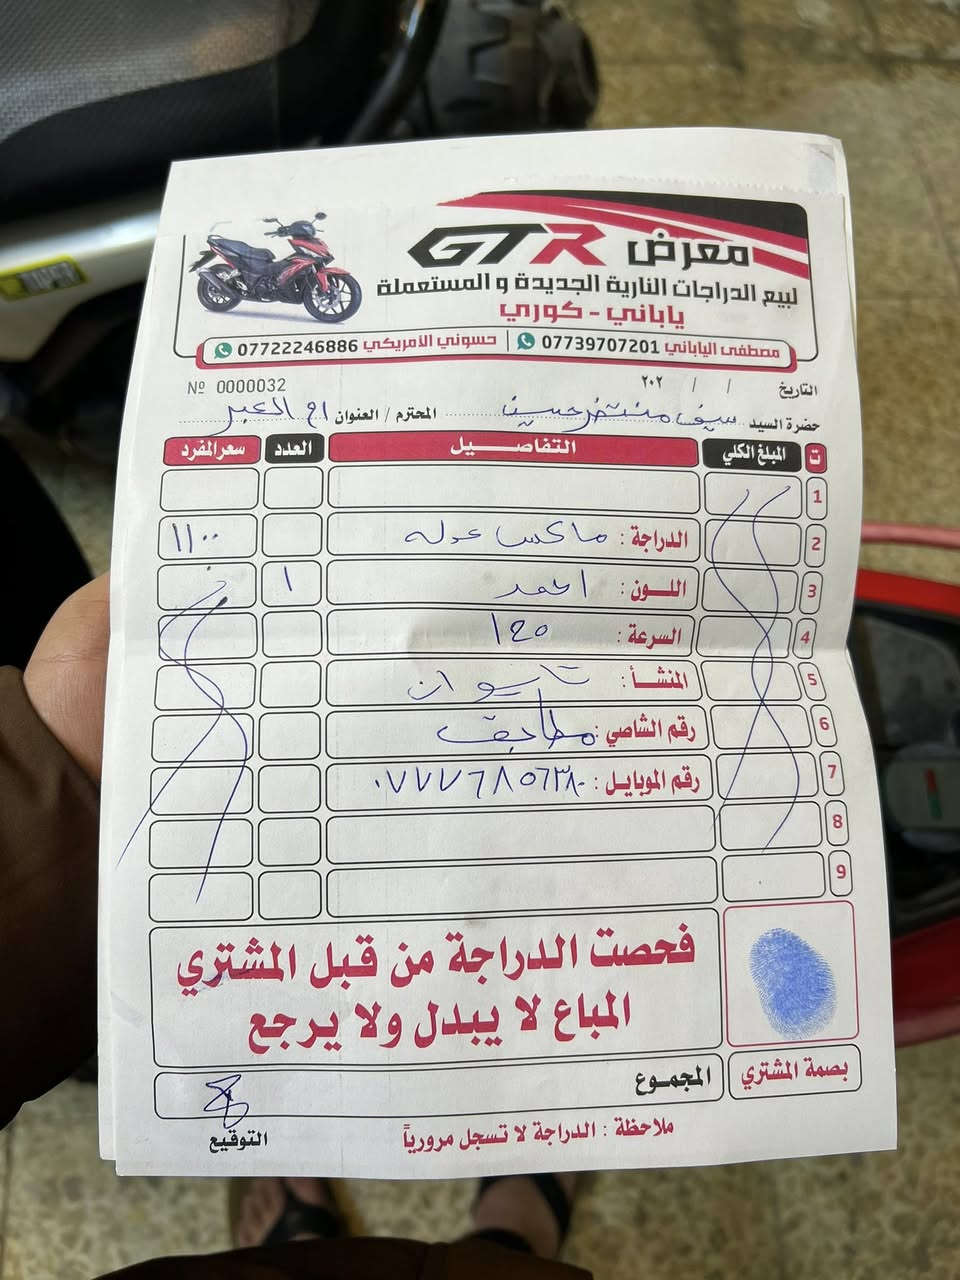 معرض GTR
لبيع الدراجات النارية الجديدة و المستعملة
ياباني - كوري
مصطفى الياباني 07739707201 | حسوني الامريكي 07722246886
التاريخ / / ٢٠٢
Nº 0000032
حضرة السيد سيف منتضر حسين المحترم / العنوان
ت المبلغ الكلي التفاصيل العدد سعر المفرد
1
2 الدراجة : ماكس ١١٠٠
3 اللون : احمر ١
4 السرعة : ١٢٥
5 المنشأ : تايوان
6 رقم الشاصي : مطابق
7 رقم الموبايل :
8
9
فحصت الدراجة من قبل المشتري
المباع لا يبدل ولا يرجع
بصمة المشتري
المجموع
ملاحظة : الدراجة لا تسجل مرورياً
التوقيع